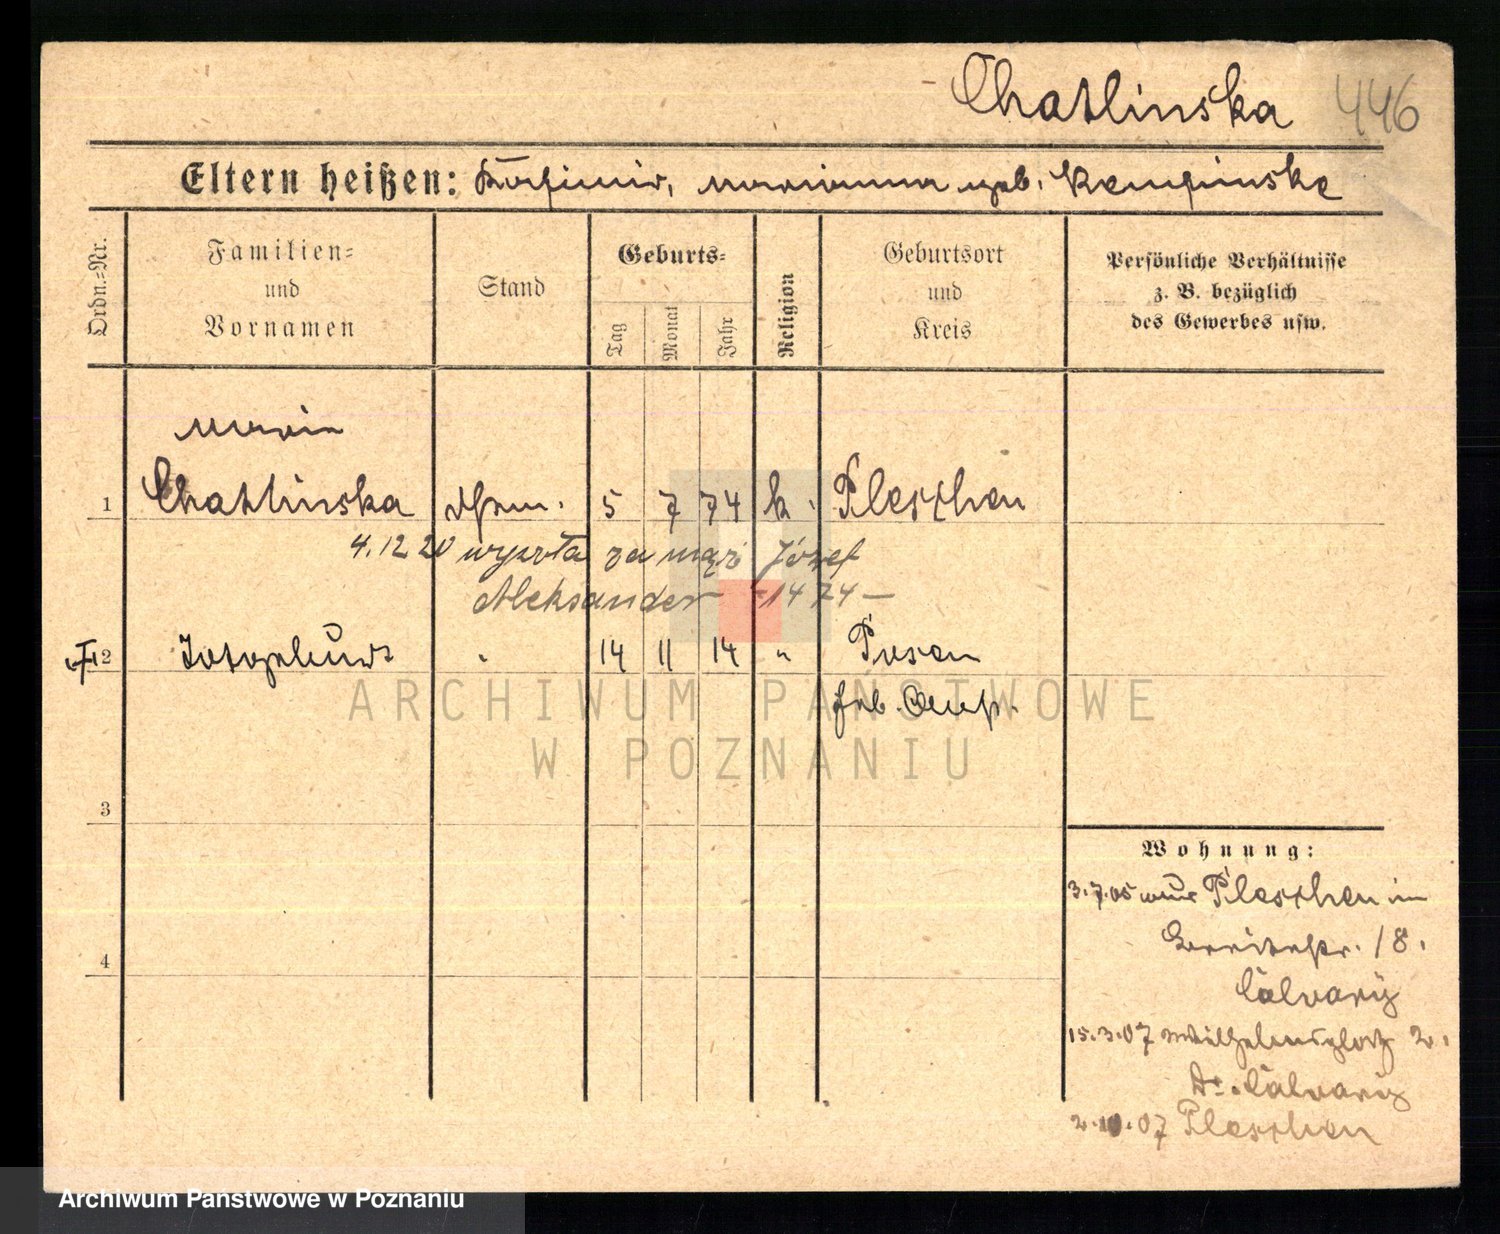 Chatlinska 446
Eltern heißen: Kasimir, Marianna geb. Kempinska
Ordn.=Nr.
Familien=
und
Vornamen
Stand
Geburts=
Tag
Monat
Jahr
Religion
Geburtsort
und
Kreis
Persönliche Verhältnisse
z. B. bezüglich
des Gewerbes usw.
Maria
1 Chatlinska 5 7 74 k. Pleschen
4.12 20 wyszła za mąż Józef
Aleksander - 14 74 -
2 Totgeburt " 14 11 14 " Posen
3
4
Wohnung:
3.7.05 aus Pleschen in
Breitestr. 18.
Calvary
15.3.07 Wilhelmsplatz 2.
Dr. Calvary
2.10.07 Pleschen
ARCHIWUM PAŃSTWOWE
W POZNANIU
Archiwum Państwowe w Poznaniu